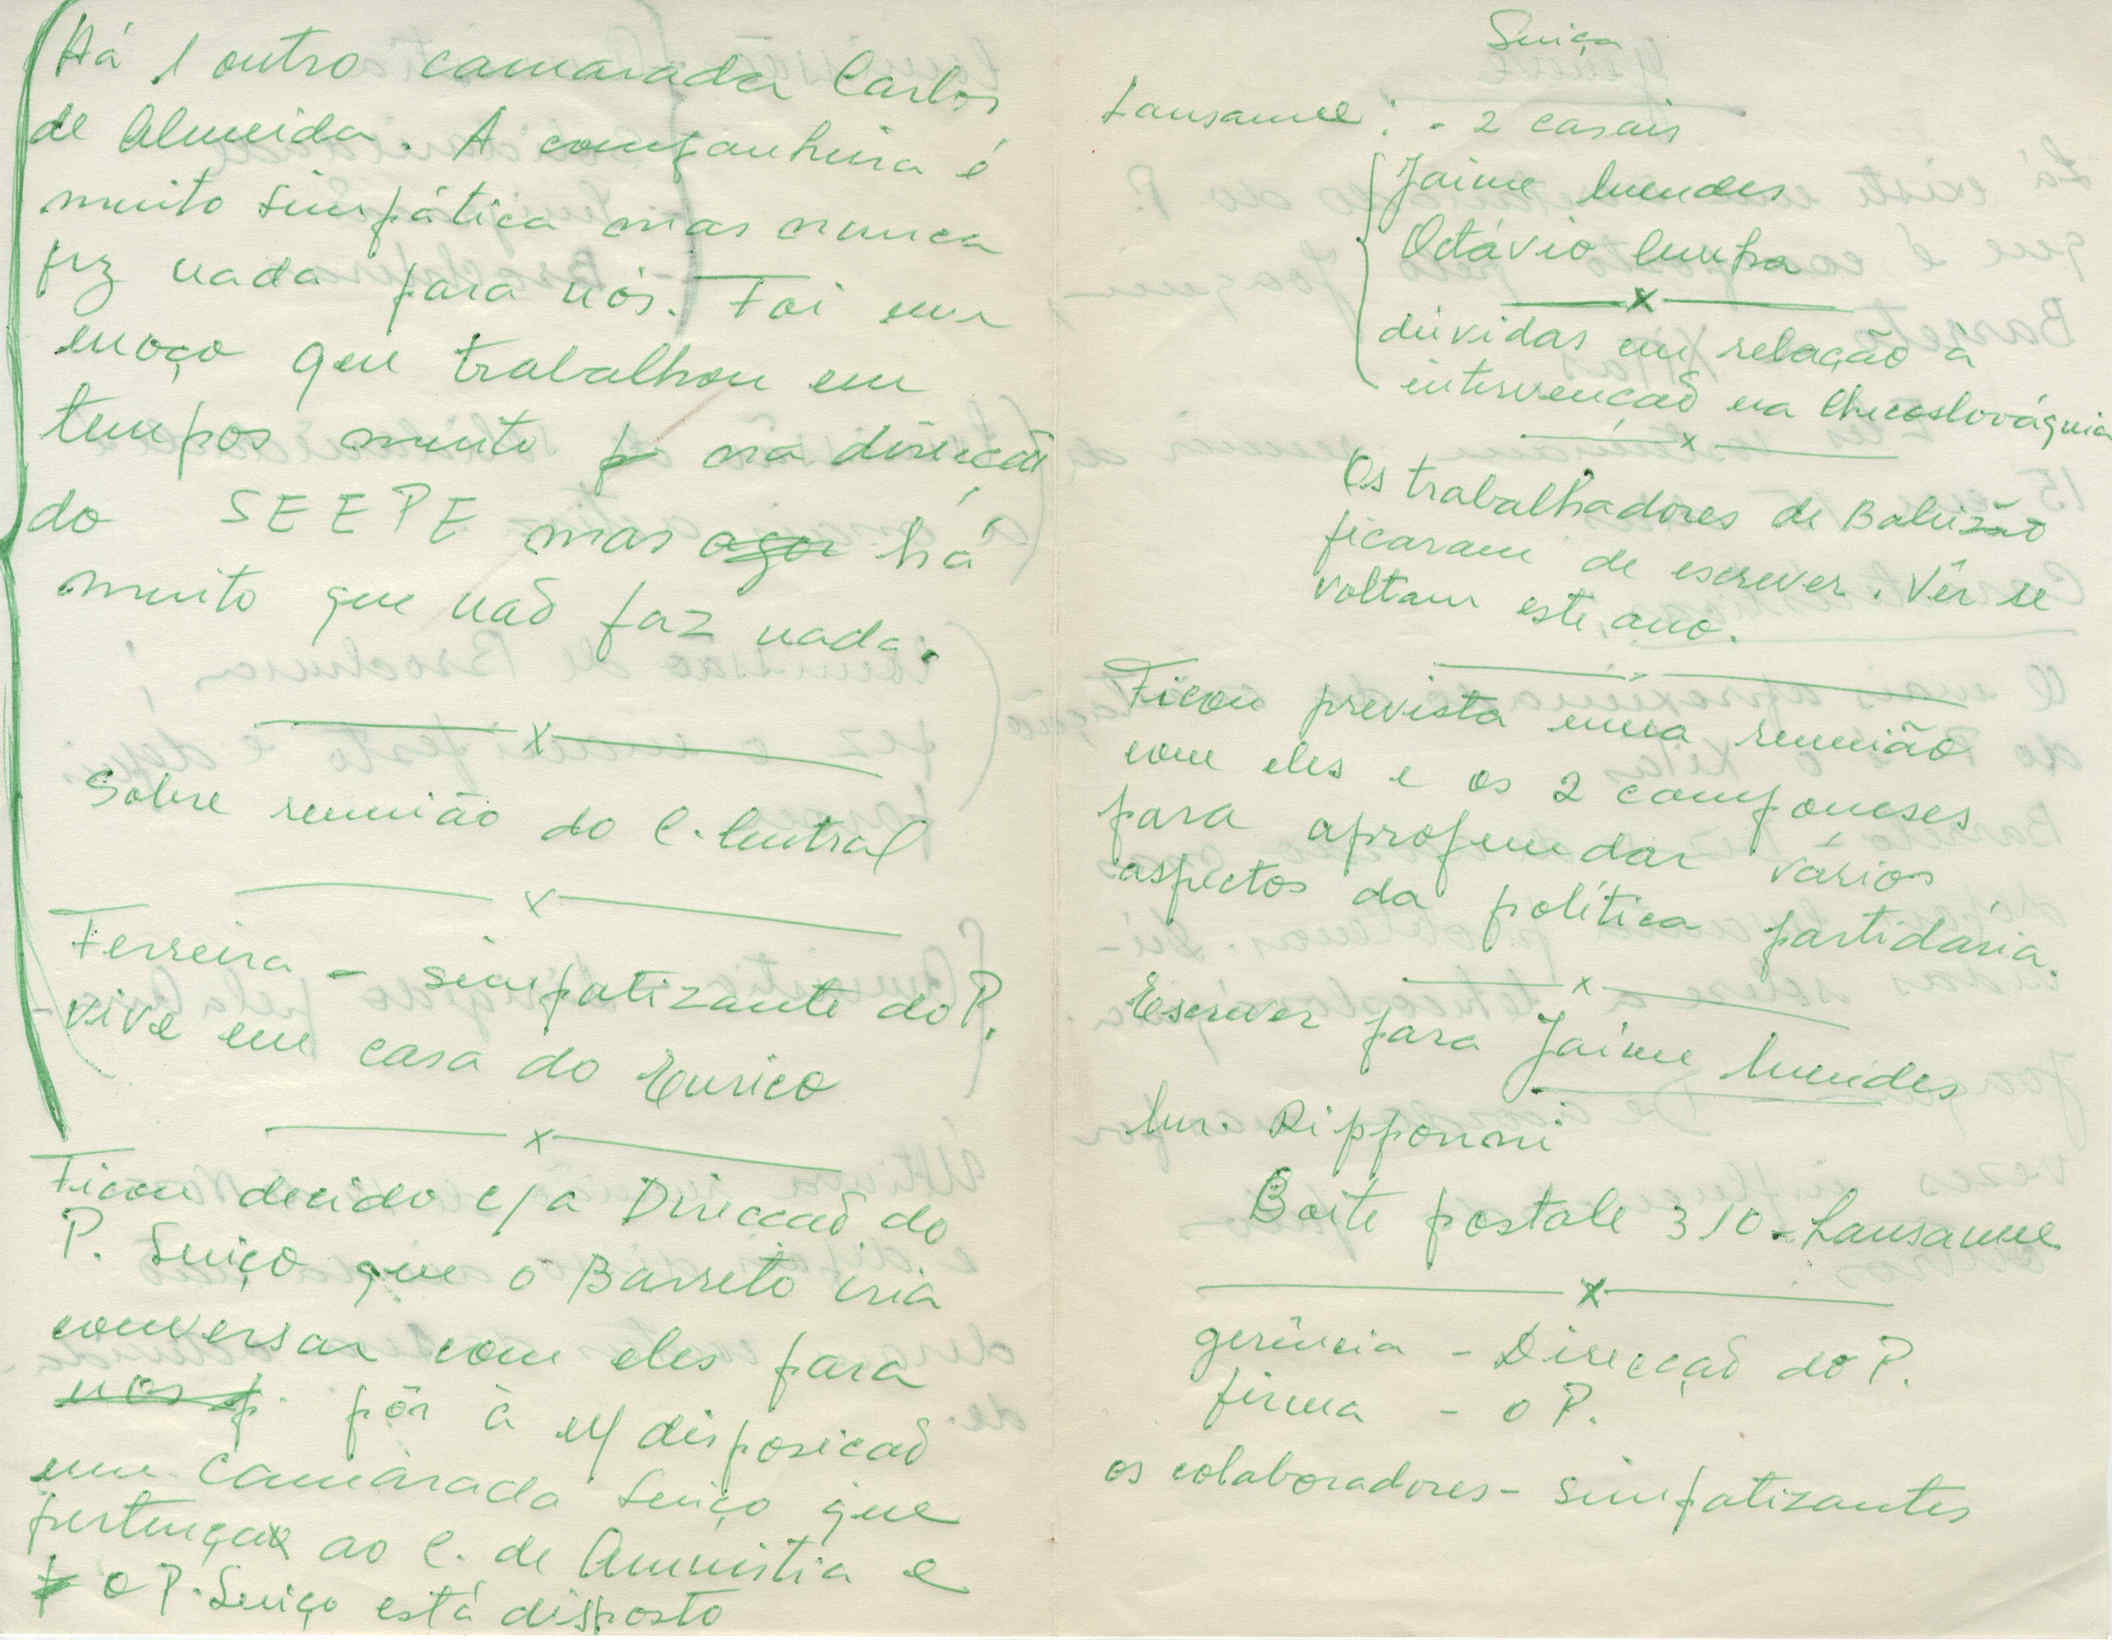 Há 1 outro camarada Carlos
de Almeida. A companheira é
muito simpática mas nunca
fez nada para nós. Foi um
moço que trabalhou em
tempos muito p na direcção
do SEEPE mas agor há
muito que não faz nada.
x
Sobre reunião do C. Central
x
Ferreira - simpatizante do P.
- vive em casa do Eurico
x
Ficou decido c/a Direcçaõ do
P. Suiço que o Barreto iria
conversar com eles para
nos p. pôr à n/ disposicaõ
um camarada suiço que
pertença ao C. de Amnistia e
o P. Suiço está disposto
Suiça
Lausanne : - 2 casais
Jaime Mendes
Octávio
x
dúvidas em relação a
intervençaõ na Checoslováquia
x
Os trabalhadores de Baleizão
ficaram de escrever. Vêr se
voltam este ano.
Ficou prevista uma reunião
com eles e os 2 camponeses
para aprofundar vários
aspectos da política partidária.
x
Escrever para Jaime Mendes
Mr. Ripponni
Boite postale 310 - Lausanne
x
gerência - Direcçaõ do P.
firma - o P.
os colaboradores - simpatizantes